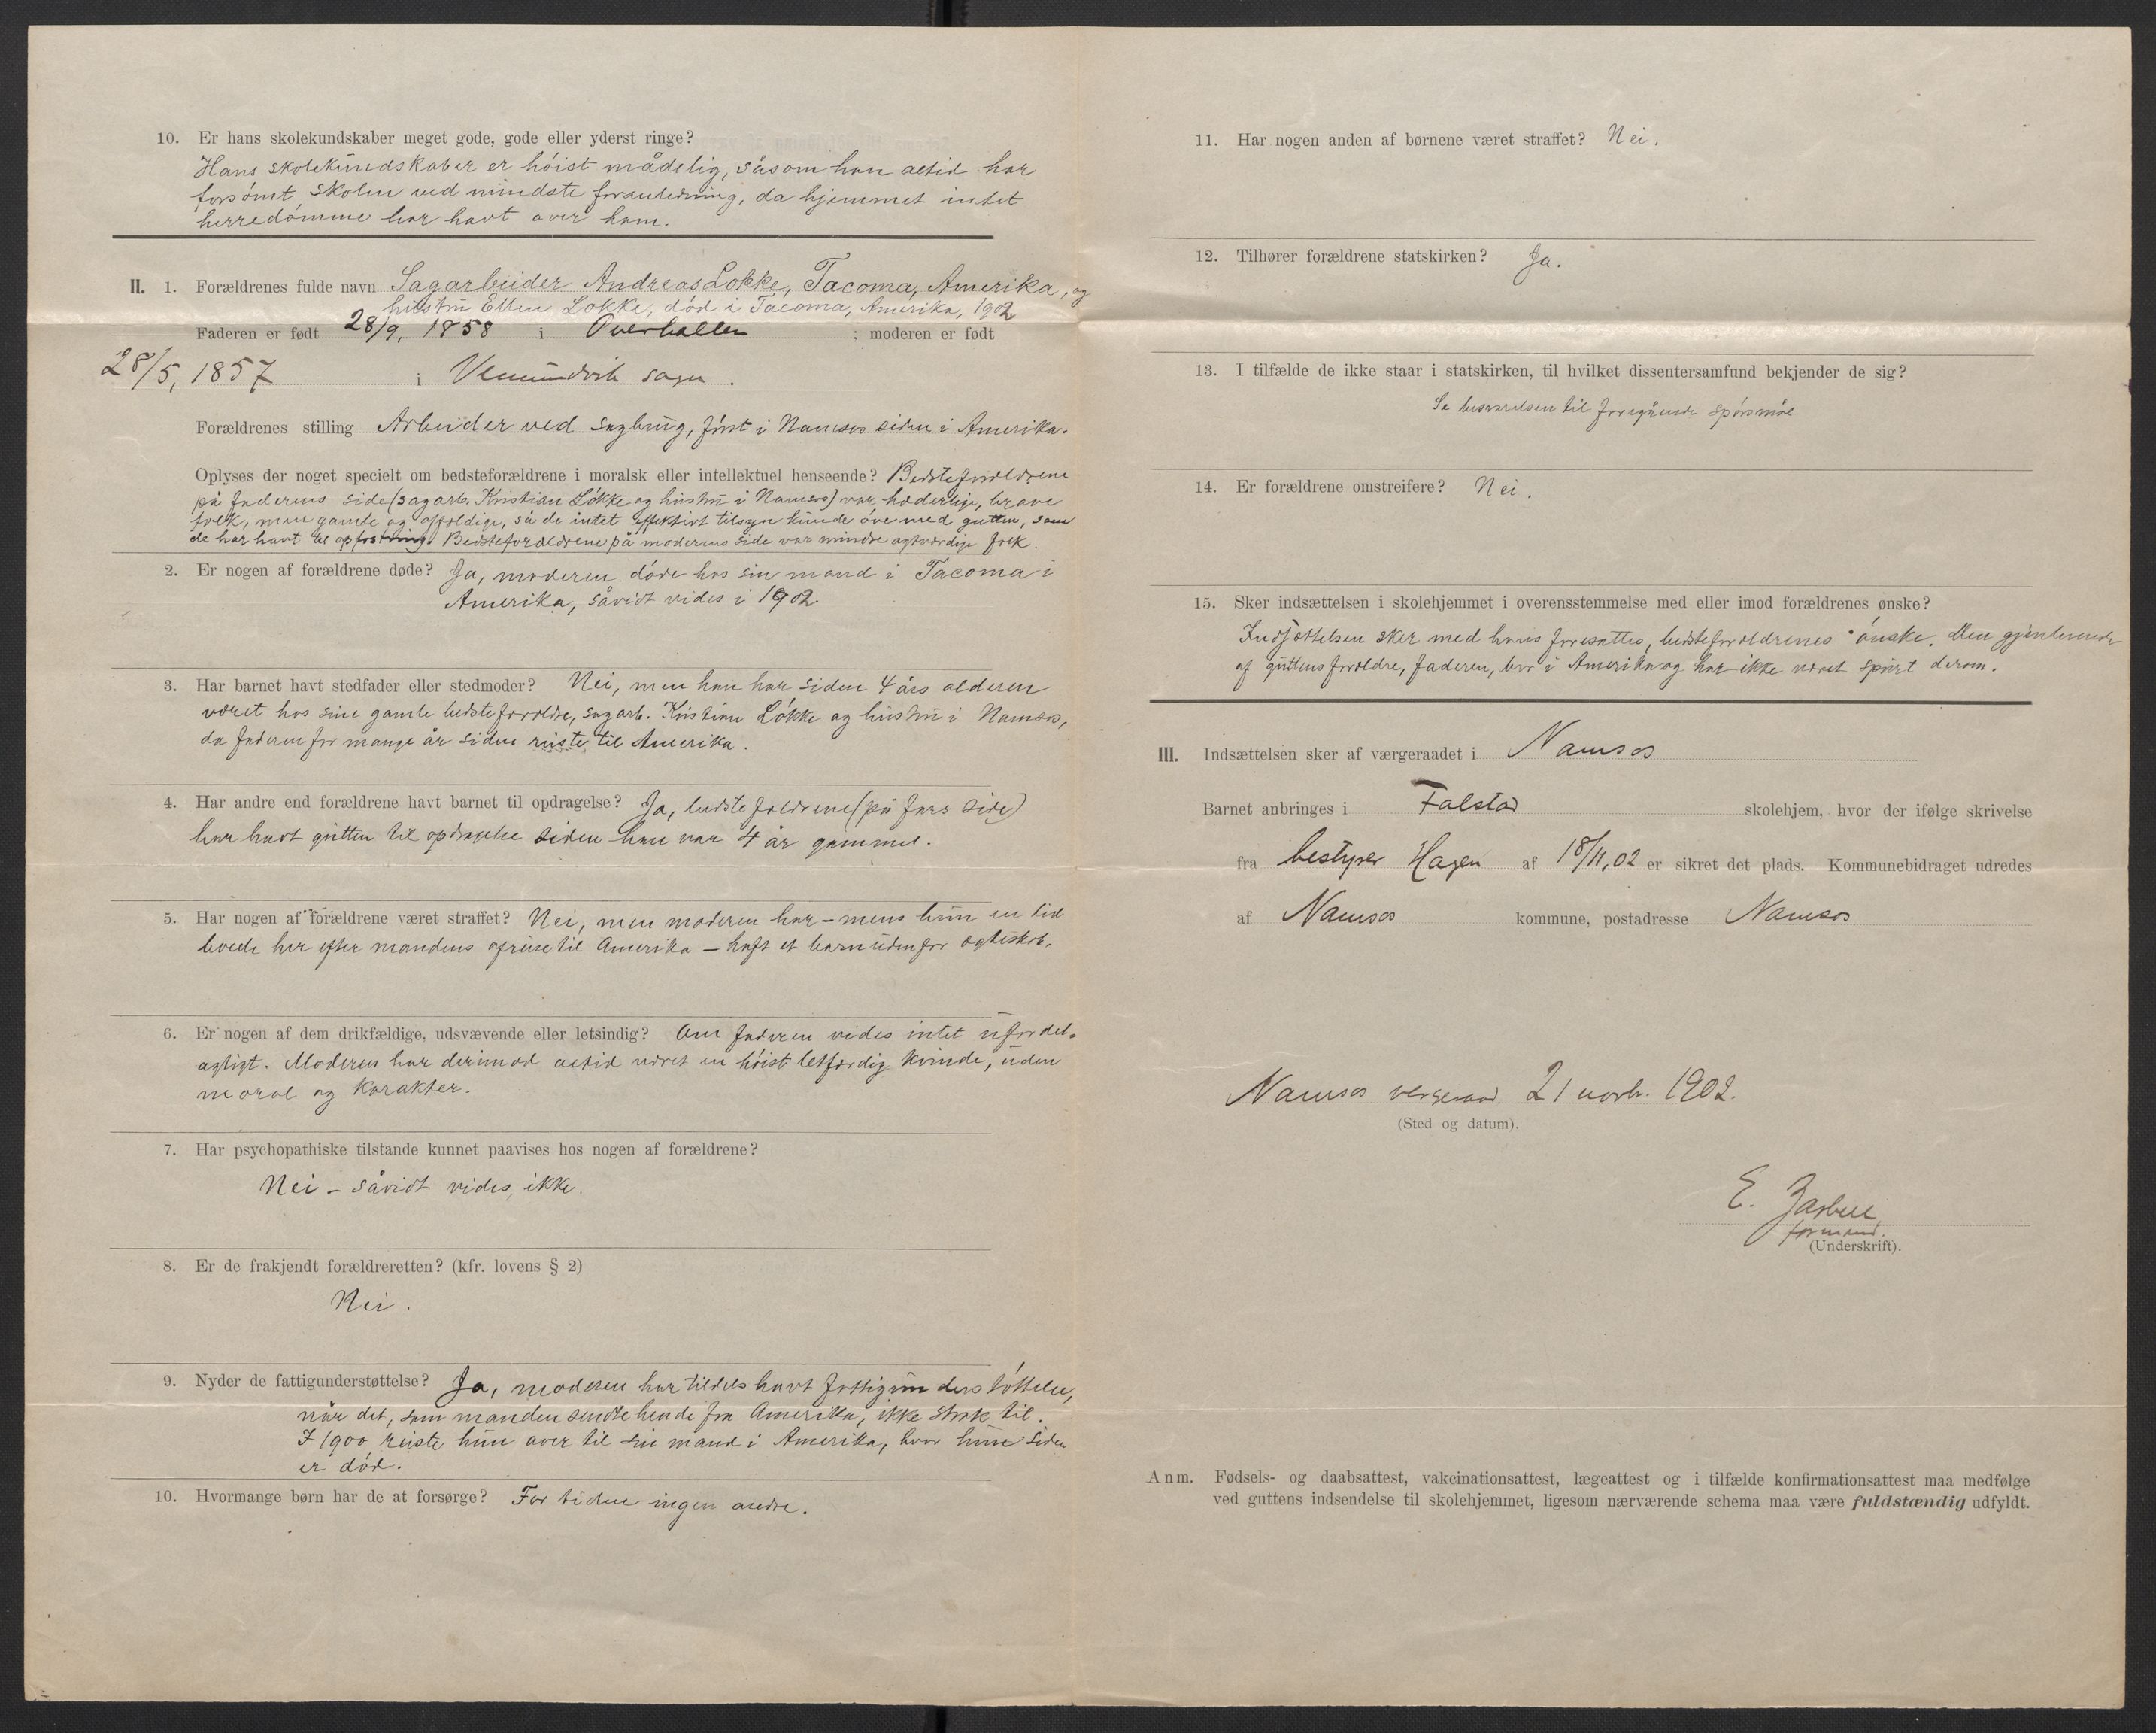 10. Er hans skolekundskaber meget gode, gode eller yderst ringe?
Hans skolekundskaber er höist mådelig, såsom han altid har
forsömt skolen ved mindste foranledning, da hjemmet intet
herredömme har havt over ham.
II. 1. Forældrenes fulde navn Sagarbeider Andreas Løkke, Tacoma, Amerika, og
hustru Ellen Løkke, död i Tacoma, Amerika, 1902
Faderen er født 28/9, 1858 i Overhallen ; moderen er født
28/5, 1857 i Vemundvik sogn.
Forældrenes stilling Arbeider ved sagbrug, först i Namsos siden i Amerika.
Oplyses der noget specielt om bedsteforældrene i moralsk eller intellektuel henseende? Bedsteforældrene
på faderens side (sagarb. Kristian Lökke og hustru i Namsos) var hæderlige, brave
folk, men gamle og affældige, så de intet effektivt tilsyn kunde öve med gutten, som
de har havt til opfostring. Bedsteforældrene på moderens side var mindre agtværdige folk.
2. Er nogen af forældrene døde? Ja, moderen döde hos sin mand i Tacoma i
Amerika, såvidt vides i 1902
3. Har barnet havt stedfader eller stedmoder? Nei, men han har siden 4 års alderen
været hos sine gamle bedsteforældre, sagarb. Kristian Lökke og hustru i Namsos,
da faderen for mange år siden reiste til Amerika.
4. Har andre end forældrene havt barnet til opdragelse? Ja, bedstefoldrene (på fars side)
har havt gutten til opdragelse siden han var 4 år gammel.
5. Har nogen af forældrene været straffet? Nei, men moderen har – mens hun en tid
levede her efter mandens afreise til Amerika – havt et barn udenfor ægteskab.
6. Er nogen af dem drikfældige, udsvævende eller letsindig? Om faderen vides intet ufordel-
agtigt. Moderen har derimod altid været en höist letfærdig kvinde, uden
moral og karakter.
7. Har psychopathiske tilstande kunnet paavises hos nogen af forældrene?
Nei – såvidt vides, ikke.
8. Er de frakjendt forældreretten? (kfr. lovens § 2)
Nei.
9. Nyder de fattigunderstøttelse? Ja, moderen har tildels havt fattigunderstöttelse,
når det, som manden sendte hende fra Amerika, ikke strak til.
I 1900 reiste hun over til sin mand i Amerika, hvor hun siden
er död.
10. Hvormange børn har de at forsørge? For tiden ingen andre.
11. Har nogen anden af børnene været straffet? Nei.
12. Tilhører forældrene statskirken? Ja.
13. I tilfælde de ikke staar i statskirken, til hvilket dissentersamfund bekjender de sig?
Se besvarelsen til foregående spörsmål
14. Er forældrene omstreifere? Nei.
15. Sker indsættelsen i skolehjemmet i overensstemmelse med eller imod forældrenes ønske?
Indsættelsen sker med hans foresattes, bedsteforældrenes önske. Den gjenlevende
af guttens forældre, faderen, bor i Amerika og har ikke været spurt derom.
III. Indsættelsen sker af værgeraadet i Namsos
Barnet anbringes i Falstad skolehjem, hvor der ifølge skrivelse
fra bestyrer Hagen af 18/11,02 er sikret det plads. Kommunebidraget udredes
af Namsos kommune, postadresse Namsos
Namsos vergeraad 21 novb. 1902.
(Sted og datum).
E.
formand.
(Underskrift).
Anm. Fødsels- og daabsattest, vakcinationsattest, lægeattest og i tilfælde konfirmationsattest maa medfølge
ved guttens indsendelse til skolehjemmet, ligesom nærværende schema maa være fuldstændig udfyldt.